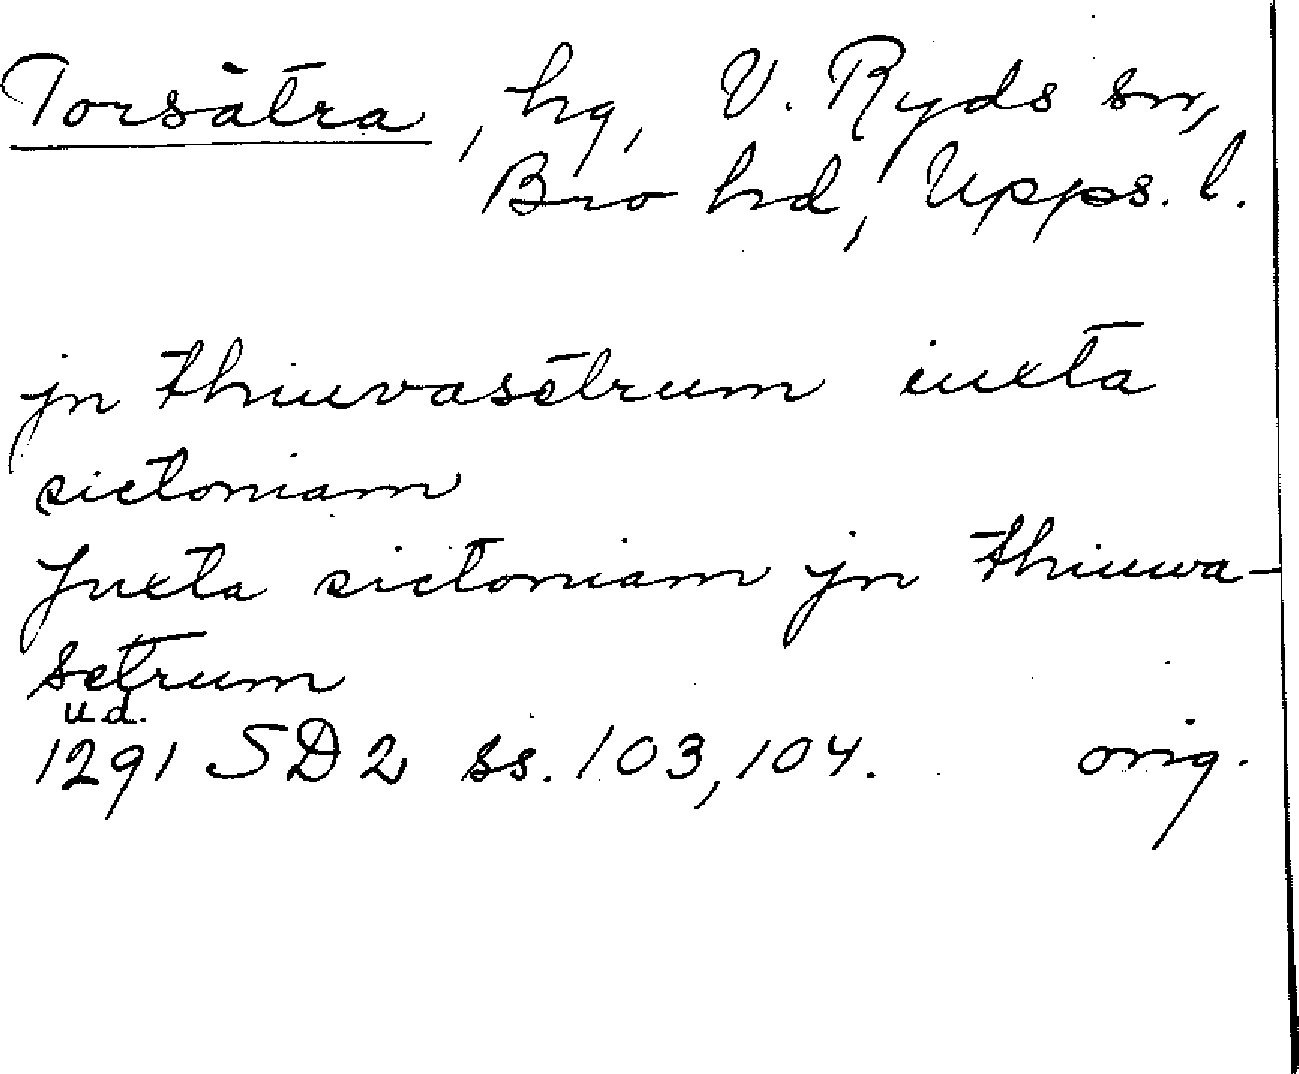 Torsåtra, hg, V. Ryds sn,
Bro hd, Upps. l.
jn thiuvasetrum iuxta
sictoniam
Juxta sictoniam jn thiuwa-
setrum
u.d.
1291 SD 2 ss. 103, 104. orig.